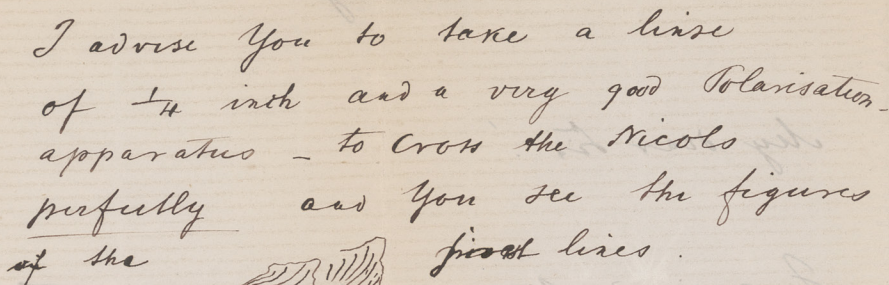 I advise You to take a linse
of 1/4 inch and a very good Polarisation-
apparatus – to Cross the Nicols
perfectly and You see the figures
of the finest lines.